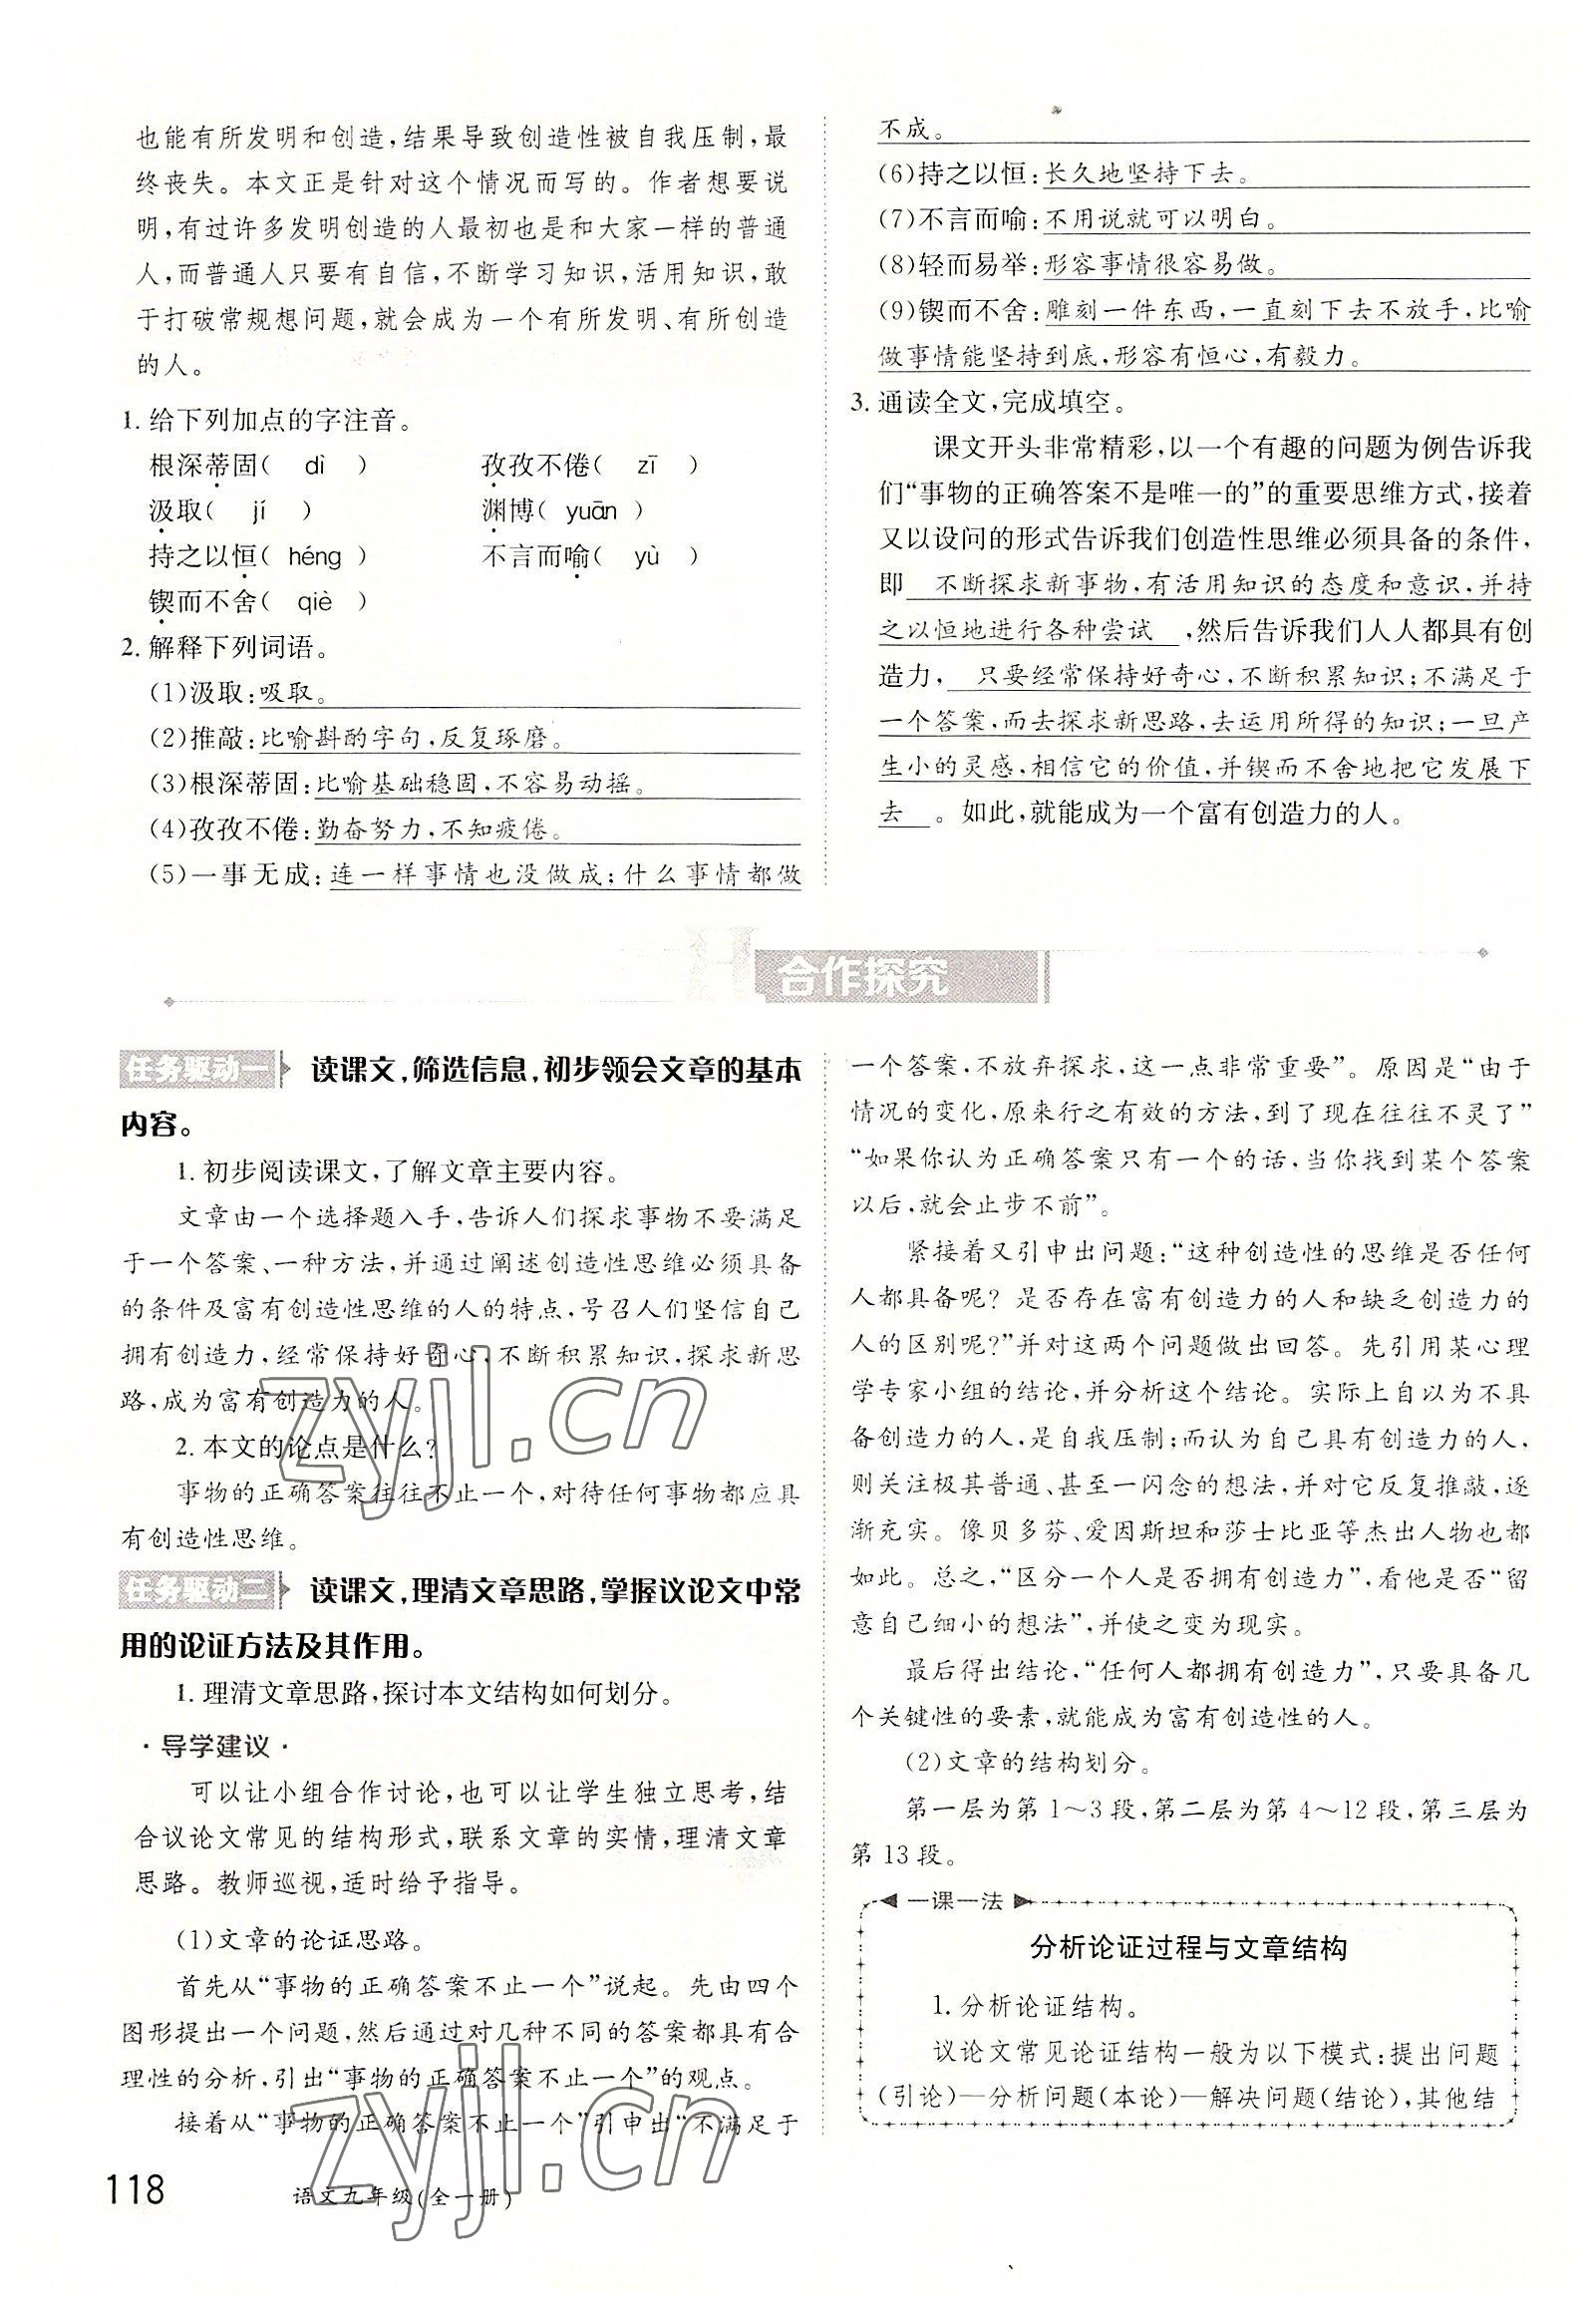 也能有所发明和创造,结果导致创造性被自我压制,最
终丧失。本文正是针对这个情况而写的。作者想要说
明,有过许多发明创造的人最初也是和大家一样的普通
人,而普通人只要有自信,不断学习知识,活用知识,敢
于打破常规想问题,就会成为一个有所发明、有所创造
的人。
1. 给下列加点的字注音。
根深蒂固( dì ) 孜孜不倦( zī )
汲取( jí ) 渊博( yuān )
持之以恒( héng ) 不言而喻( yù )
锲而不舍( qiè )
2. 解释下列词语。
(1)汲取:吸取。
(2)推敲:比喻斟酌字句,反复琢磨。
(3)根深蒂固:比喻基础稳固,不容易动摇。
(4)孜孜不倦:勤奋努力,不知疲倦。
(5)一事无成:连一样事情也没做成;什么事情都做
不成。
(6)持之以恒:长久地坚持下去。
(7)不言而喻:不用说就可以明白。
(8)轻而易举:形容事情很容易做。
(9)锲而不舍:雕刻一件东西,一直刻下去不放手,比喻
做事情能坚持到底,形容有恒心,有毅力。
3. 通读全文,完成填空。
课文开头非常精彩,以一个有趣的问题为例告诉我
们“事物的正确答案不是唯一的”的重要思维方式,接着
又以设问的形式告诉我们创造性思维必须具备的条件,
即 不断探求新事物,有活用知识的态度和意识,并持
之以恒地进行各种尝试 ,然后告诉我们人人都具有创
造力, 只要经常保持好奇心,不断积累知识;不满足于
一个答案,而去探求新思路,去运用所得的知识;一旦产
生小的灵感,相信它的价值,并锲而不舍地把它发展下
去 。如此,就能成为一个富有创造力的人。
H 合作探究
任务驱动一 读课文,筛选信息,初步领会文章的基本
内容。
1. 初步阅读课文,了解文章主要内容。
文章由一个选择题入手,告诉人们探求事物不要满足
于一个答案、一种方法,并通过阐述创造性思维必须具备
的条件及富有创造性思维的人的特点,号召人们坚信自己
拥有创造力,经常保持好奇心,不断积累知识,探求新思
路,成为富有创造力的人。
2. 本文的论点是什么?
事物的正确答案往往不止一个,对待任何事物都应具
有创造性思维。
任务驱动二 读课文,理清文章思路,掌握议论文中常
用的论证方法及其作用。
1. 理清文章思路,探讨本文结构如何划分。
·导学建议·
可以让小组合作讨论,也可以让学生独立思考,结
合议论文常见的结构形式,联系文章的实情,理清文章
思路。教师巡视,适时给予指导。
(1)文章的论证思路。
首先从“事物的正确答案不止一个”说起。先由四个
图形提出一个问题,然后通过对几种不同的答案都具有合
理性的分析,引出“事物的正确答案不止一个”的观点。
接着从“事物的正确答案不止一个”引申出“不满足于
一个答案,不放弃探求,这一点非常重要”。原因是“由于
情况的变化,原来行之有效的方法,到了现在往往不灵了”
“如果你认为正确答案只有一个的话,当你找到某个答案
以后,就会止步不前”。
紧接着又引申出问题:“这种创造性的思维是否任何
人都具备呢? 是否存在富有创造力的人和缺乏创造力的
人的区别呢?”并对这两个问题做出回答。先引用某心理
学专家小组的结论,并分析这个结论。实际上自以为不具
备创造力的人,是自我压制;而认为自己具有创造力的人,
则关注极其普通、甚至一闪念的想法,并对它反复推敲,逐
渐充实。像贝多芬、爱因斯坦和莎士比亚等杰出人物也都
如此。总之,“区分一个人是否拥有创造力”,看他是否“留
意自己细小的想法”,并使之变为现实。
最后得出结论,“任何人都拥有创造力”,只要具备几
个关键性的要素,就能成为富有创造性的人。
(2)文章的结构划分。
第一层为第 1～3 段,第二层为第 4～12 段,第三层为
第 13 段。
一课一法
分析论证过程与文章结构
1. 分析论证结构。
议论文常见论证结构一般为以下模式:提出问题
(引论)—分析问题(本论)—解决问题(结论),其他结
zyjl.cn
zyjl.cn
118 语文九年级(全一册)